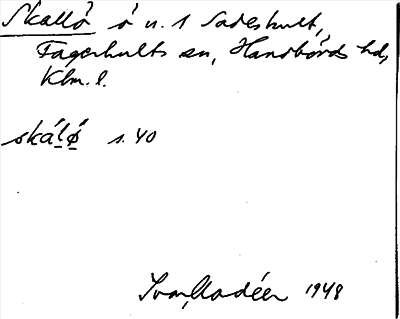 Skallö ö n. 1 Sadeshult,
Fagerhults sn, Handbörds hd,
Klm. l.
skálø̄ s. 40
Ivar Modéer 1948